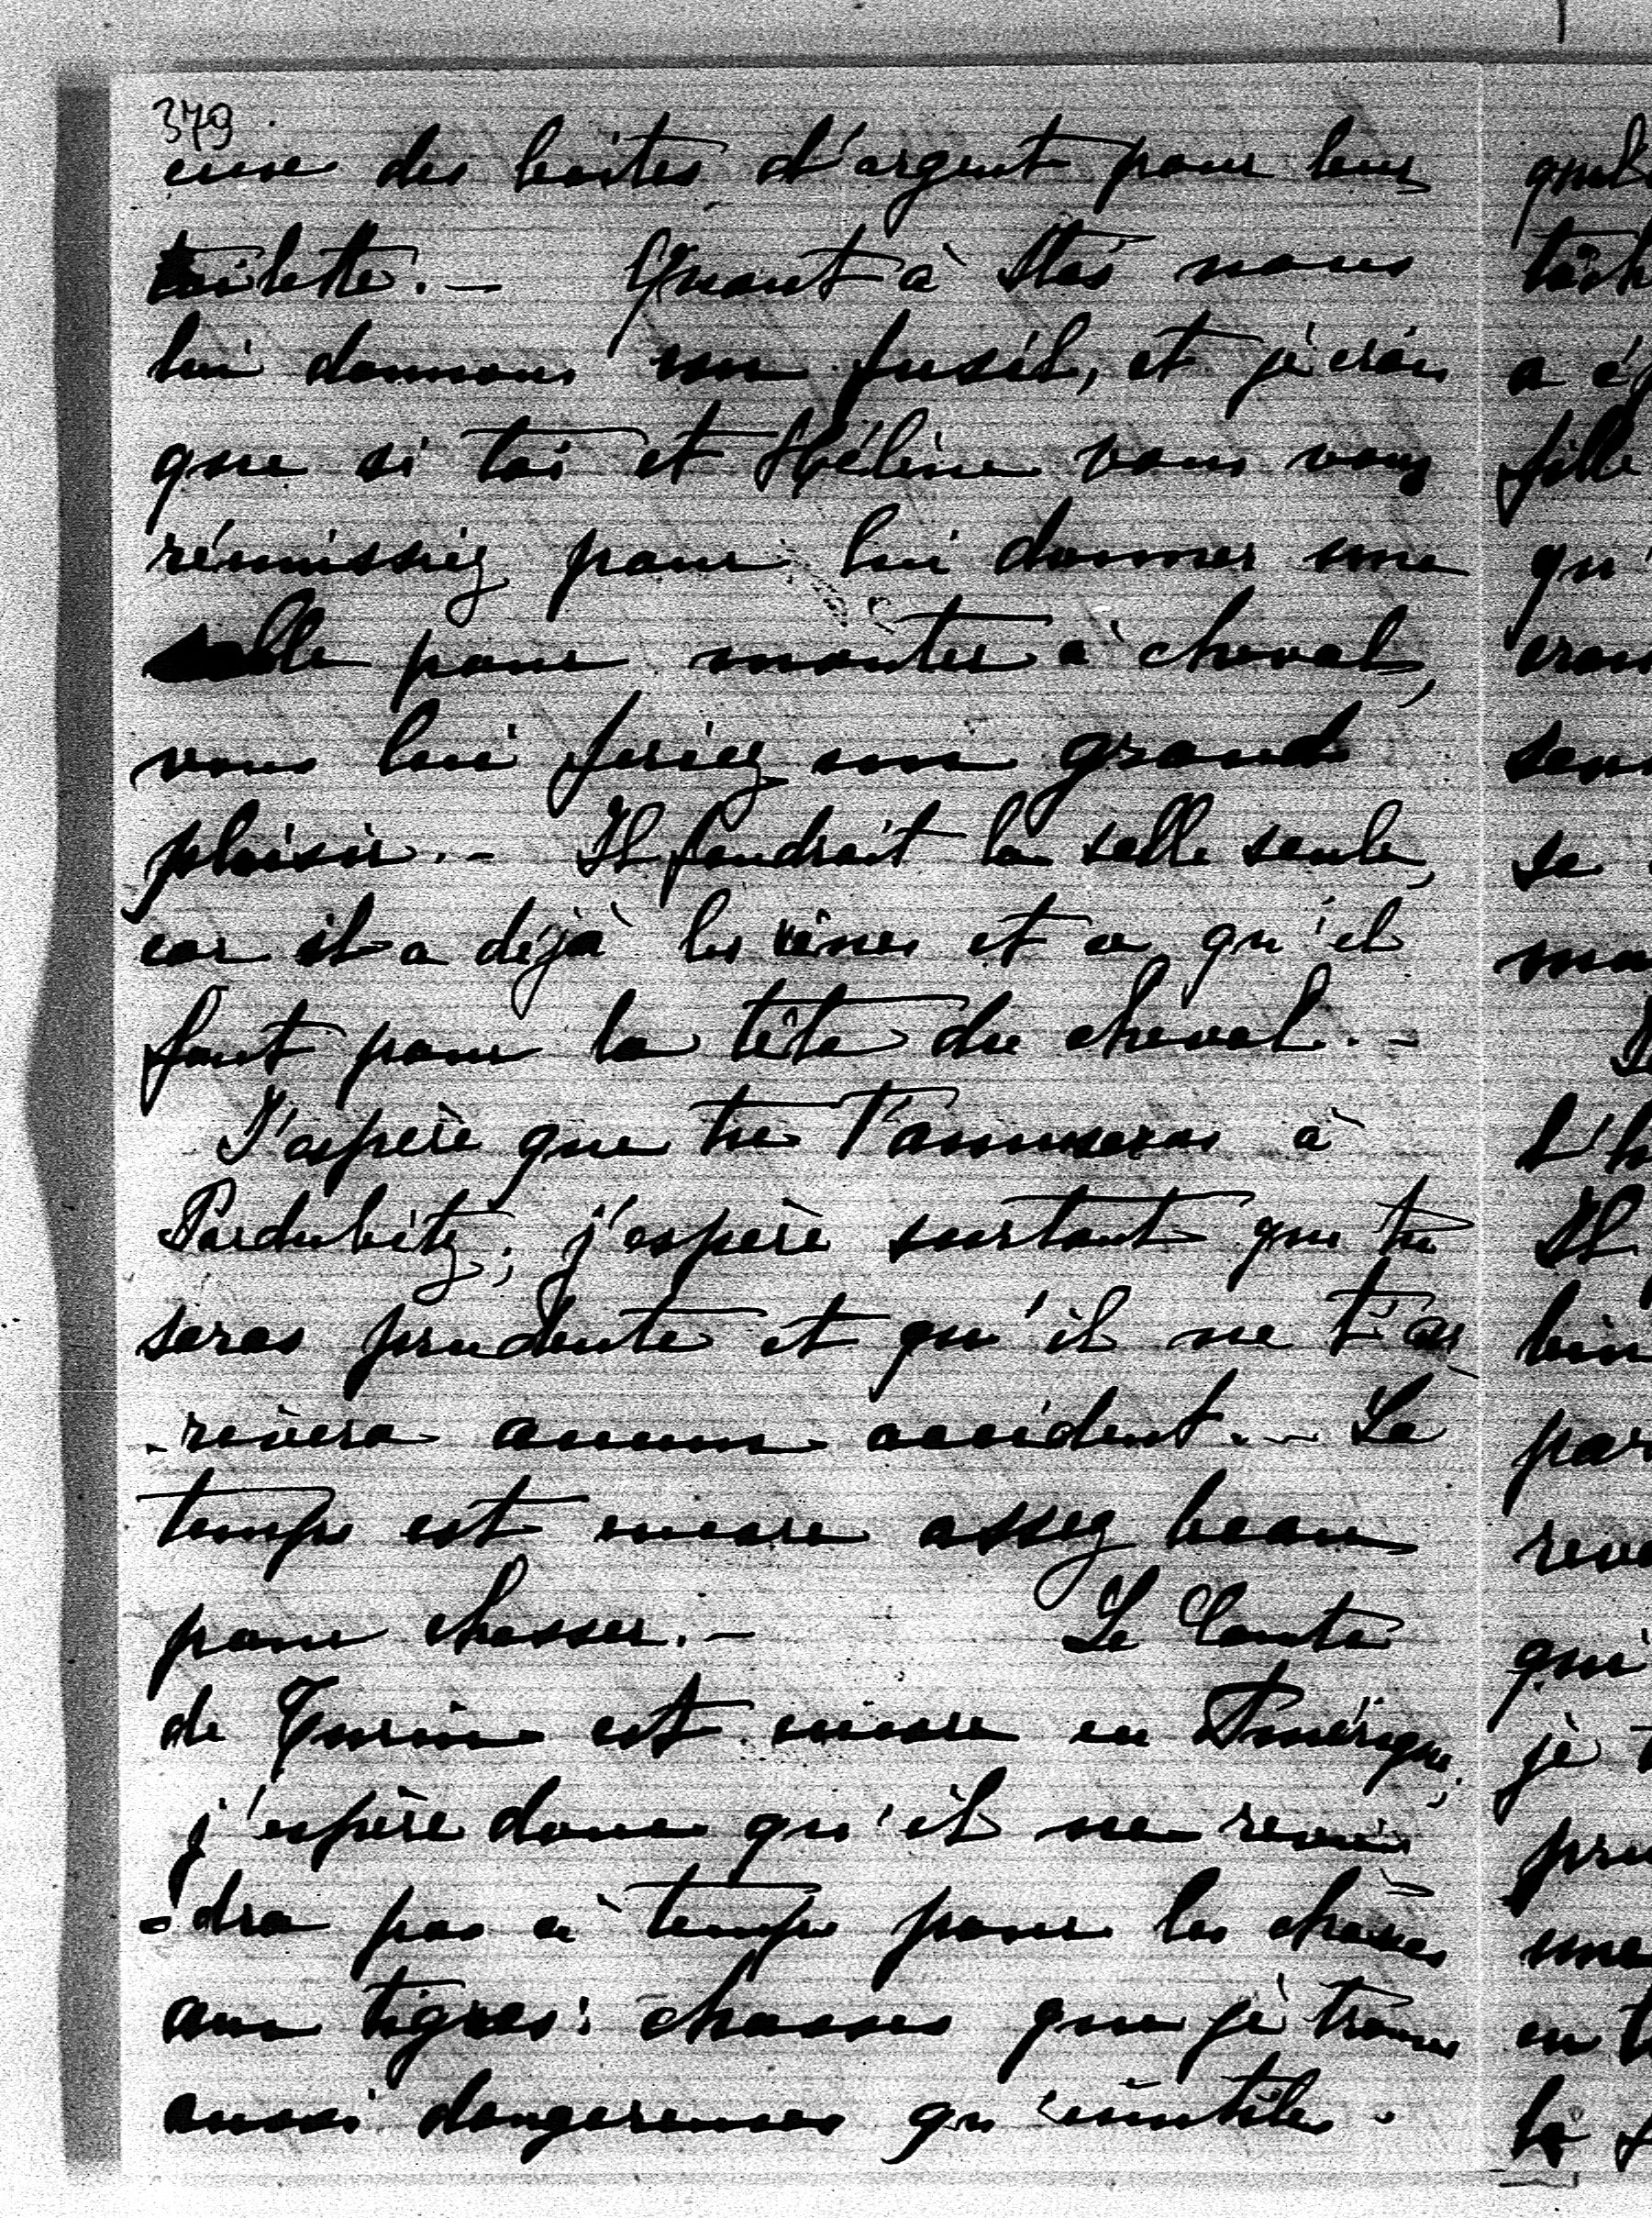 379
euse des boîtes d'argent pour leur
toilette. - Quant à Stas nous
lui donnons un fusil, et je crois
que si toi et Hélène vous vous
réunissiez pour lui donner une
selle pour monter à cheval,
vous lui feriez un grand
plaisir. - Il faudrait la selle seule,
car il a déjà les rênes et ce qu'il
faut pour la tête du cheval. -
J'espère que tu t'amuseras à
Pardubitz; j'espère surtout que tu
seras prudente et qu'il ne t'ar
-rivera aucun accident. - Le
temps est encore assez beau
pour chasser. - Le Comte
de Turin est encore en Amérique;
j'espère donc qu'il ne revien
-dra pas à temps pour les chasses
aux tigres: chasses que je trouve
aussi dangereuses qu'inutiles.